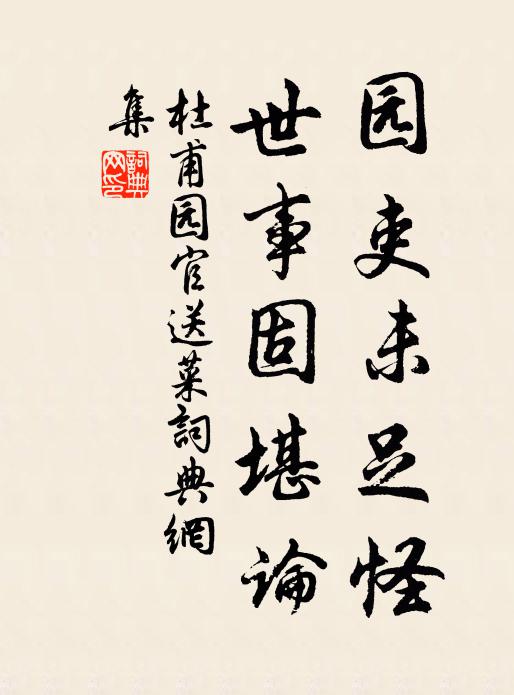 园吏未足怪
世事固堪論
杜甫园官送菜詞典網
集
詞典
网印